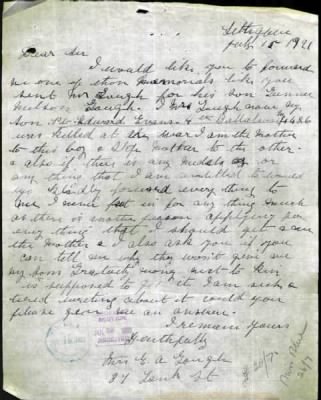 July 15 1921
Dear Sir
I would like you to forward
me one of those memorials like you
sent Mr Gough for his son Gunner
Nelson Gough. I Mrs Gough now my
son Pte Edward Evans 4th Battalion
was killed at the war I am the mother
to this boy & Step Mother to the other.
& also if there is any medals or
any thing that I am entitled to would
you Kindly forward everything to
me I never put in for any thing much
as there is another person applying for
any thing that I should get I am
the Mother & I also ask you if you
can tell me why they won't give me
my sons Gratuity money next to Kin
is supposed to get it I am sick &
tired writing about it could you
please give me an answer.
I remain Yours
Faithfully
Mrs E. A Gough
St
20/7